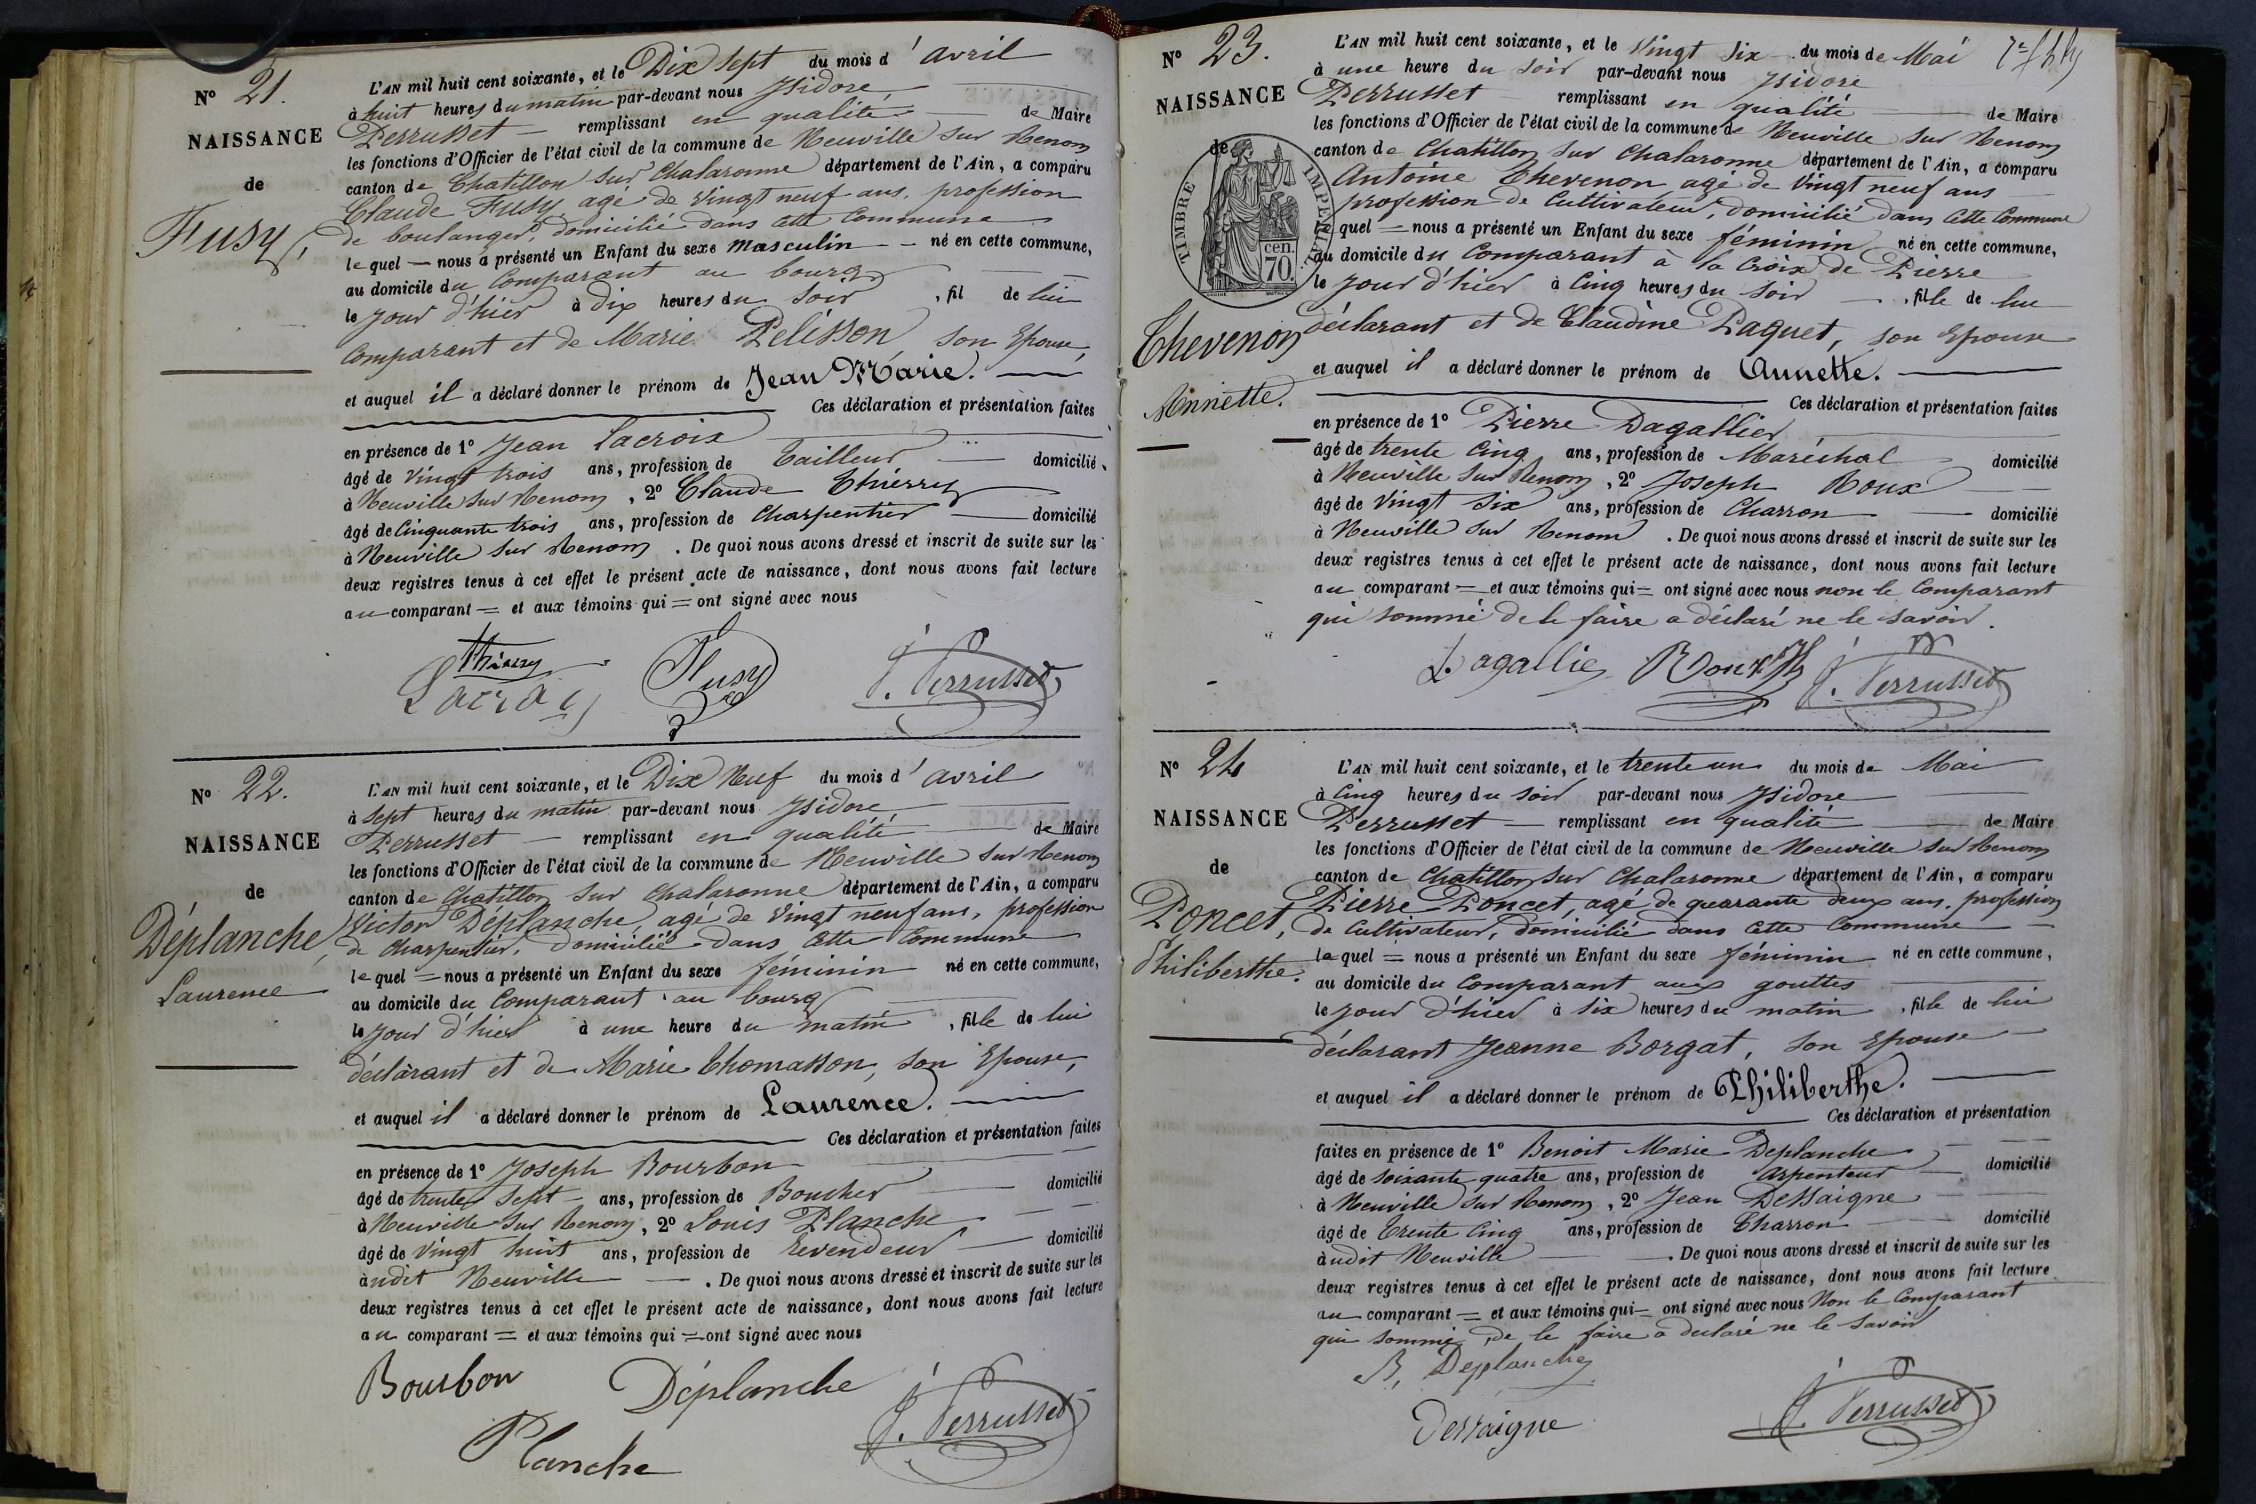 N° 21.
NAISSANCE
de
Fusy,
L'AN mil huit cent soixante, et le Dix sept du mois d'avril
à huit heures du matin par-devant nous Isidore
Perrusset remplissant en qualité de Maire
les fonctions d'Officier de l'état civil de la commune de Neuville sur Renom
canton de Chatillon sur Chalaronne département de l'Ain, a comparu
Claude Fusy agé de vingt neuf ans, profession
de boulanger, domicilié dans cette commune
lequel nous a présenté un Enfant du sexe masculin né en cette commune,
au domicile du Comparant au bourg
le jour d'hier à dix heures du soir, fil de lui
Comparant et de Marie Pelisson son Epouse,
et auquel il a déclaré donner le prénom de Jean Marie.
Ces déclaration et présentation faites
en présence de 1° Jean Lacroix
âgé de vingt trois ans, profession de tailleur domicilié
à Neuville sur Renom, 2° Claude Thiérry
âgé de Cinquante trois ans, profession de Charpentier domicilié
à Neuville sur Renom. De quoi nous avons dressé et inscrit de suite sur les
deux registres tenus à cet effet le présent acte de naissance, dont nous avons fait lecture
au comparant = et aux témoins qui = ont signé avec nous
Thierry
Lacroix Fusy J. Perrusset
N° 22.
NAISSANCE
de
Déplanche,
Laurence
L'AN mil huit cent soixante, et le Dix Neuf du mois d'avril
à sept heures du matin par-devant nous Isidore
Perrusset remplissant en qualité de Maire
les fonctions d'Officier de l'état civil de la commune de Neuville sur Renom
canton de Chatillon sur Chalaronne département de l'Ain, a comparu
Victor Déplanche, agé de vingt neuf ans, profession
de Charpentier, domicilié dans cette Commune
lequel = nous a présenté un Enfant du sexe féminin né en cette commune,
au domicile du Comparant au bourg
le jour d'hier à une heure du matin, fille de lui
déclarant et de Marie Thomasson, son Epouse,
et auquel il a déclaré donner le prénom de Laurence.
Ces déclaration et présentation faites
en présence de 1° Joseph Bourbon
âgé de trente sept ans, profession de Boucher domicilié
à Neuville sur Renom, 2° Louis Planche
âgé de vingt huit ans, profession de revendeur domicilié
à udit Neuville. De quoi nous avons dressé et inscrit de suite sur les
deux registres tenus à cet effet le présent acte de naissance, dont nous avons fait lecture
au comparant = et aux témoins qui = ont signé avec nous
Bourbon Déplanche J. Perrusset
Planche
N° 23.
NAISSANCE
de
TIMBRE IMPERIAL
cen.
70.
Chevenon
Annette.
L'AN mil huit cent soixante, et le vingt six du mois de Mai
à une heure du soir par-devant nous Isidore
Perrusset remplissant en qualité de Maire
les fonctions d'Officier de l'état civil de la commune de Neuville sur Renom
canton de Chatillon sur Chalaronne département de l'Ain, a comparu
Antoine Chevenon agé de vingt neuf ans
profession de Cultivateur, domicilié dans cette Commune
lequel = nous a présenté un Enfant du sexe féminin né en cette commune,
au domicile du Comparant à la Croix de Pierre
le jour d'hier à Cinq heures du soir, fille de lui
déclarant et de Claudine Paquet, son Epouse
et auquel il a déclaré donner le prénom de Annette.
Ces déclaration et présentation faites
en présence de 1° Pierre Dagallier
âgé de trente Cinq ans, profession de Maréchal domicilié
à Neuville sur Renom, 2° Joseph Roux
âgé de vingt six ans, profession de Charron domicilié
à Neuville sur Renom. De quoi nous avons dressé et inscrit de suite sur les
deux registres tenus à cet effet le présent acte de naissance, dont nous avons fait lecture
au comparant = et aux témoins qui = ont signé avec nous non le Comparant
qui sommé de le faire a déclaré ne le savoir.
Dagallier Roux J. Perrusset
N° 24
NAISSANCE
de
Poncet,
Philiberthe.
L'AN mil huit cent soixante, et le trente un du mois de Mai
à Cinq heures du soir par-devant nous Isidore
Perrusset remplissant en qualité de Maire
les fonctions d'Officier de l'état civil de la commune de Neuville sur Renom
canton de Chatillon sur Chalaronne département de l'Ain, a comparu
Pierre Poncet, agé de quarante deux ans, profession
de Cultivateur, domicilié dans cette Commune
lequel = nous a présenté un Enfant du sexe féminin né en cette commune,
au domicile du Comparant aux gouttes
le jour d'hier à six heures du matin, fille de lui
déclarant Jeanne Borgat, son Epouse
et auquel il a déclaré donner le prénom de Philiberthe.
Ces déclaration et présentation
faites en présence de 1° Benoit Marie Deplanche
âgé de soixante quatre ans, profession de arpenteur domicilié
à Neuville sur Renom, 2° Jean Dessaigne
âgé de trente Cinq ans, profession de Charron domicilié
à udit Neuville. De quoi nous avons dressé et inscrit de suite sur les
deux registres tenus à cet effet le présent acte de naissance, dont nous avons fait lecture
au comparant = et aux témoins qui = ont signé avec nous Non le Comparant
qui sommé de le faire a declaré ne le savoir
B. Deplanche
Dessaigne J. Perrusset